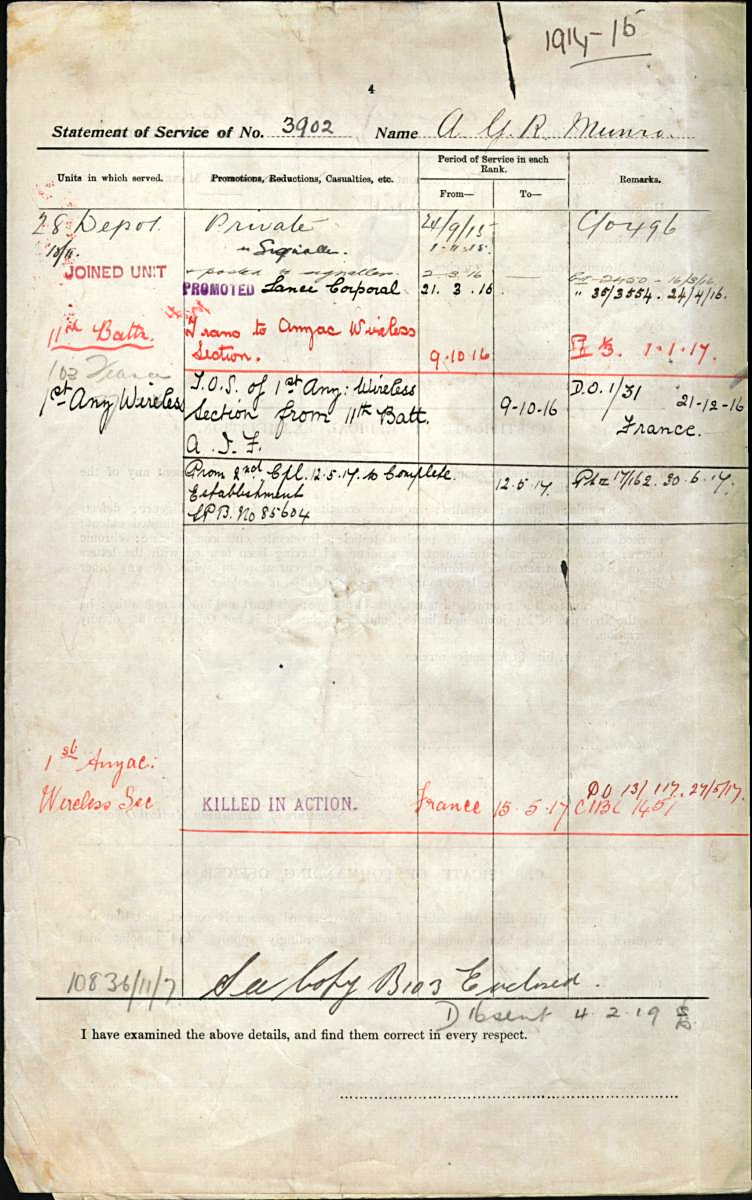 1914-15
4
Statement of Service of No. 3902 Name A. G. R. Munro.
Units in which served.
Promotions, Reductions, Casualties, etc.
Period of Service in each Rank.
From—
To—
Remarks.
28 Depot. Private 24/9/15
" Signaller. 1-11-15
JOINED UNIT
+ posted to signallers 2-3-16 16/3/16
PROMOTED Lance Corporal 21. 3. 16 " 35/3554. 24/4/16.
11th Battn. Trans to Anzac Wireless
Section. 9-10-16 1-1-17.
1st Anz Wireless
T.O.S. of 1st Anz: Wireless
Section from 11th Batt.
A. I. F.
9-10-16
D.O. 1/31
21-12-16
France.
Prom 2nd Cpl. 12.5.17. to Complete
Establishment
12.5.17. 17/162. 30.6.17.
No 85604
1st Anzac:
Wireless Sec KILLED IN ACTION. France 15.5.17
DO 13/117. 27/5/17.
1451
10836/11/7 See Copy B103 Enclosed.
4.2.19
I have examined the above details, and find them correct in every respect.